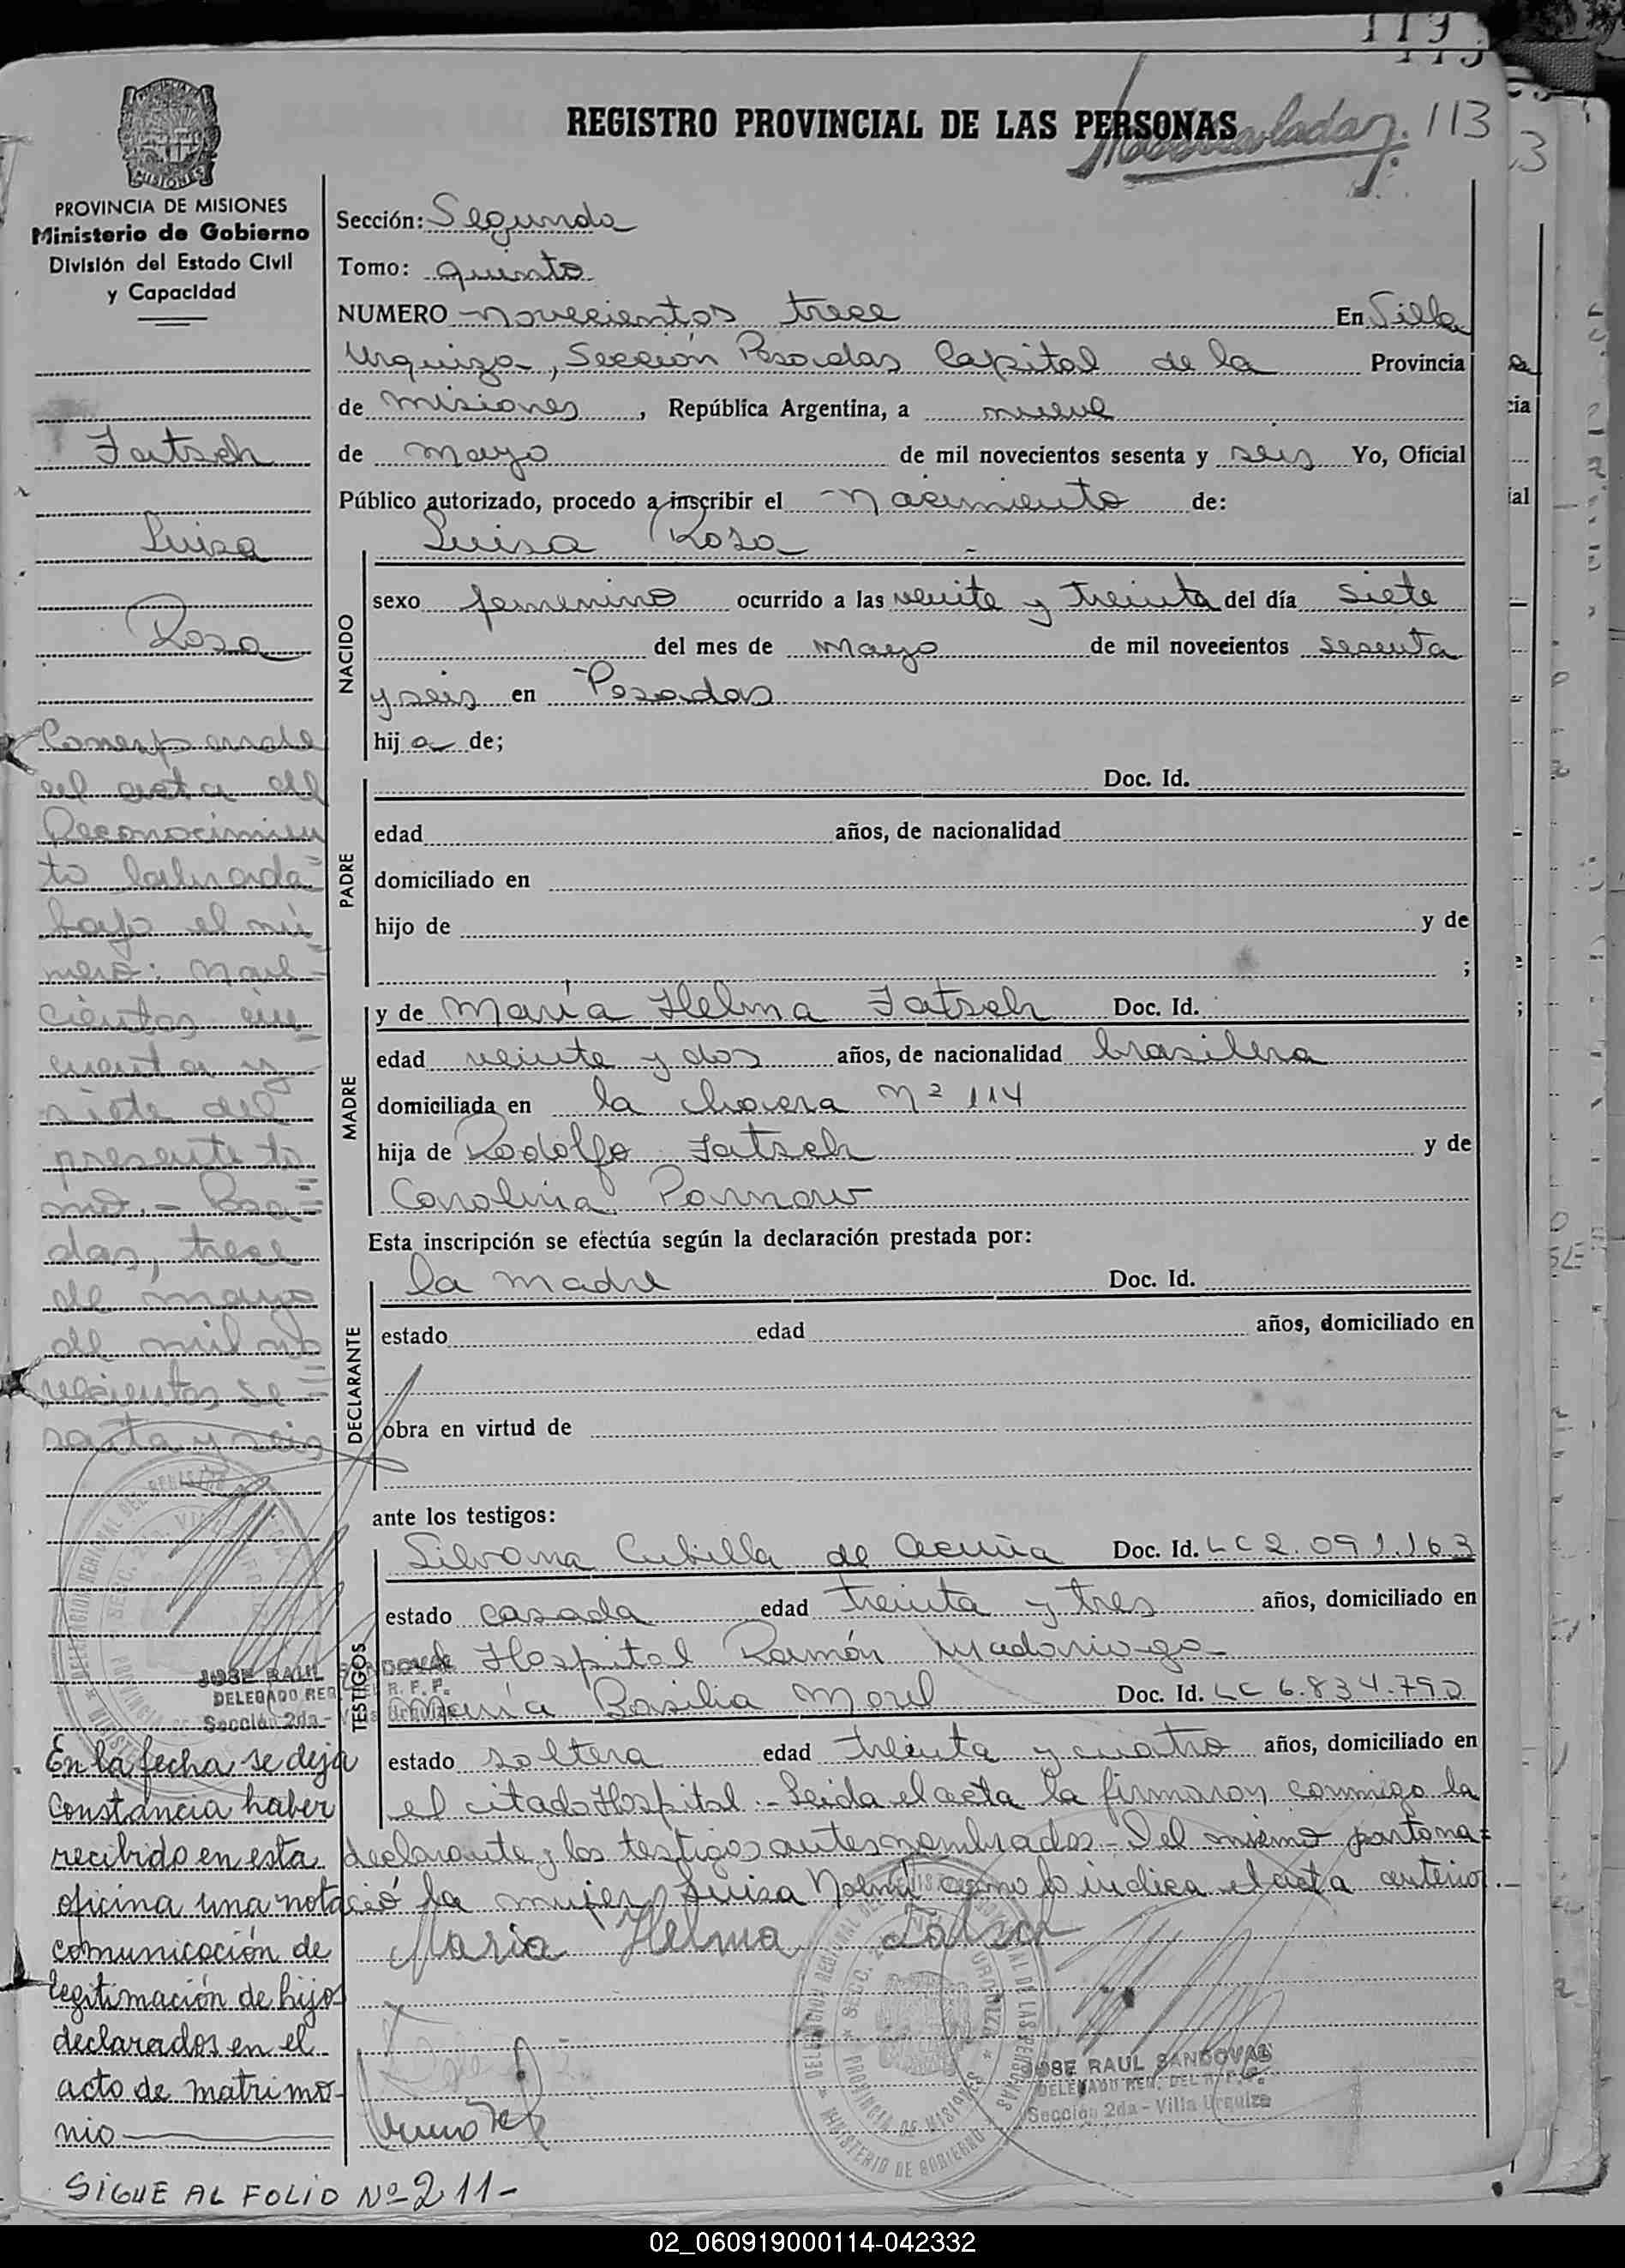 119
REGISTRO PROVINCIAL DE LAS PERSONAS
113
MISIONES
PROVINCIA DE MISIONES
Ministerio de Gobierno
División del Estado Civil
y Capacidad
Jatsch
Luisa
Rosa
Corresponde
el acta de
Reconocimien
to labrada
bajo el nú
mero:
cientos cin
cuenta y
siete del
presente to
mo.- Posa=
das, trece
de mayo
de mil no
vecientos se=
senta y seis
JOSE RAUL SANDOVAL
DELEGADO REG. DEL R. P. P.
Sección 2da - Villa Urquiza
En la fecha se deja
Constancia haber
recibido en esta
oficina una nota
comunicación de
legitimación de hijos
declarados en el
acto de matrimo-
nio
SIGUE AL FOLIO Nº 211-
Sección: Segunda
Tomo: quinto
NUMERO novecientos trece En Villa
Urquiza, Sección Posadas Capital de la Provincia
de Misiones, República Argentina, a nueve
de mayo de mil novecientos sesenta y seis Yo, Oficial
Público autorizado, procedo a inscribir el nacimiento de:
Luisa Rosa
NACIDO
sexo femenino ocurrido a las veinte y treinta del día siete
del mes de mayo de mil novecientos sesenta
y seis en Posadas
hija de;
PADRE
Doc. Id.
edad años, de nacionalidad
domiciliado en
hijo de y de
;
MADRE
y de María Helma Jatsch Doc. Id.
edad veinte y dos años, de nacionalidad brasilera
domiciliada en la chacra Nº 114
hija de Rodolfo Jatsch y de
Carolina Pornow
Esta inscripción se efectúa según la declaración prestada por:
DECLARANTE
la madre Doc. Id.
estado edad años, domiciliado en
obra en virtud de
ante los testigos:
TESTIGOS
Silvana Cubilla de Acuña Doc. Id. LC 2.091.163
estado casada edad treinta y tres años, domiciliado en
el Hospital Ramón Madariaga
María Basilia Morel Doc. Id. LC 6.834.790
estado soltera edad treinta y cuatro años, domiciliado en
el citado Hospital.- Leida el acta la firmaron conmigo la
declarante y los testigos antes nombrados.- Del mismo parto na=
ció la mujer Luisa como lo indica el acta anterior.-
Maria Helma Jatsch
DELEGACION REGIONAL DEL REGISTRO PROVINCIAL DE LAS PERSONAS
SECC. 2da. VILLA URQUIZA
PROVINCIA DE MISIONES
MINISTERIO DE GOBIERNO
JOSE RAUL SANDOVAL
DELEGADO REG. DEL R. P. P.
Sección 2da - Villa Urquiza
02_060919000114-042332